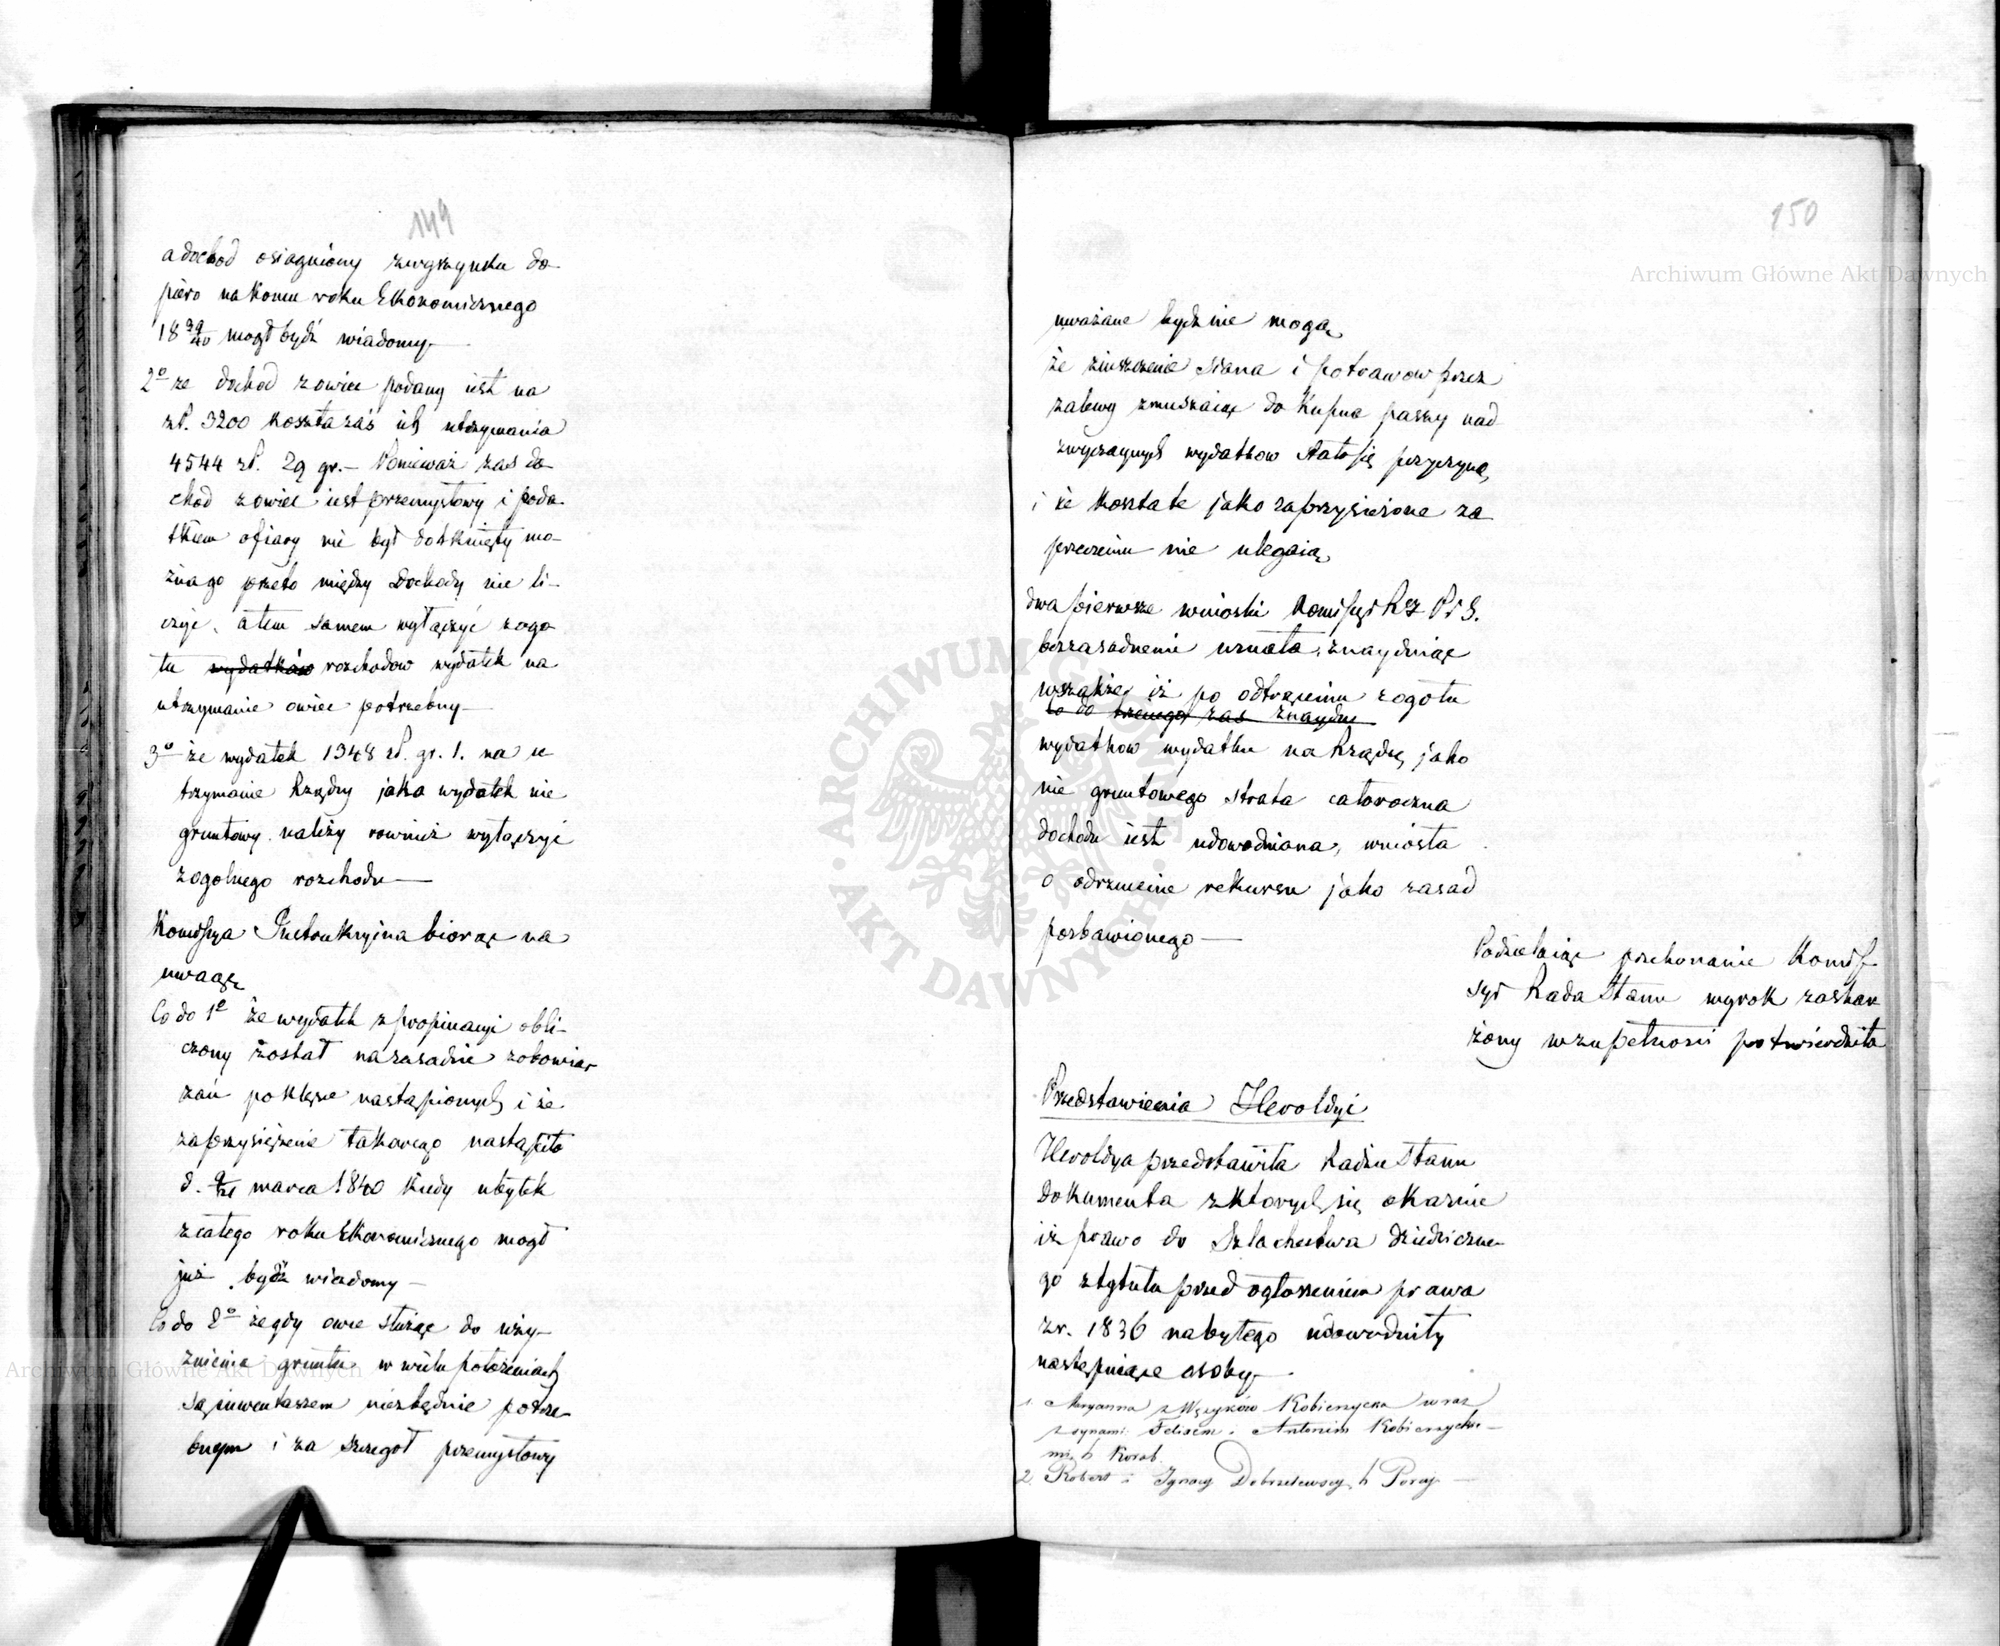 149
a dochod osiągniony z wyszynku do-
piero na koncu roku Ekonomicznego
18 39/40 mogł bydź wiadomy —
2º ze dochod z owiec podany iest na
zł. 3200 koszta zaś ich utrzymania
4544 zł. 29 gr. — Ponieważ zas do-
chod z owiec iest przemysłowy i poda-
tkiem ofiary nie był dotknięty mo-
żnago przeto między Dochody nie li-
czyć, a tem samem wyłączyć z ogo-
łu wydatków rozchodow wydatek na
utrzymanie owiec potrzebny —
3º że wydatek 1348 zł. gr. 1. na u-
trzymanie Rządcy jako wydatek nie
gruntowy należy rownież wyłączyć
z ogolnego rozchodu —
Komissya Instrukcyina biorąc na
uwagę
Co do 1º że wydatek z propinacyi obli-
czony został na zasadzie zobowią-
zań po klęsce nastąpionych i że
zaprzysiężenie takowego nastąpiło
d. marca 1840 kiedy ubytek
z całego roku Ekonomicznego mogł
już bydź wiadomy —
Co do 2º że gdy owce służąc do uży-
znienia gruntu w wielu położeniach
są inwentarzem niezbędnie potrze-
bnym i za szczegoł przemysłowy
150
uważane bydź nie mogą,
że zniszczenie siana i potrawow przez
zalewy zmuszaiąc do kupna paszy nad-
zwyczaynych wydatkow stało się przyczyną,
i że koszta te jako zaprzysiężone za-
przeczeniu nie ulegaią,
dwa pierwsze wnioski Komissyi Rz. P. i S.
bezzasadnemi uznała, znayduiąc
wszakże iż po odtrąceniu z ogołu
co do trzeciego zas znayduie
wydatkow wydatku na Rządcę, jako
nie gruntowego strata całoroczna
dochodu iest udowodniona, wniosła
o odrzucenie rekursu jako zasad
pozbawionego —
Podzielaiąc przekonanie Komis-
syi Rada Stanu wyrok zaskar-
żony w zupełności potwierdziła
Przedstawienia Heroldyi
Heroldya przedstawiła Radzie Stanu
Dokumenta z ktorych się okazuie
iż prawo do Szlachectwa dziedziczne-
go z tytułu przed ogłoszeniem prawa
z r. 1836 nabytego udowodniły
następuiące osoby —
1. Maryanna z Wężyków Kobierzycka wraz
z synami Felixem i Antonim Kobierzycki-
mi h. Korab.
2. Robert i Ignacy Dobrzelewscy h. Poray —
Archiwum Główne Akt Dawnych
Archiwum Główne Akt Dawnych
ARCHIWUM GŁÓWNE AKT DAWNYCH